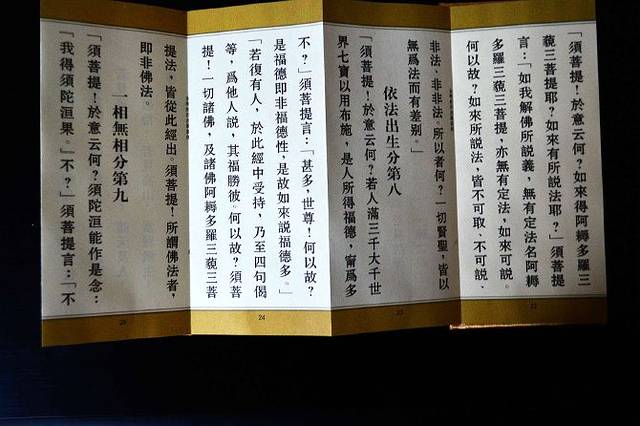 「須菩提！於意云何？如來得阿耨多羅三
藐三菩提耶？如來有所說法耶？」須菩提
言：「如我解佛所說義，無有定法名阿耨
多羅三藐三菩提，亦無有定法，如來可說。
何以故？如來所說法，皆不可取、不可說、
22
非法、非非法。所以者何？一切賢聖，皆以
無爲法而有差別。」
依法出生分第八
「須菩提！於意云何？若人滿三千大千世
界七寶以用布施，是人所得福德，甯爲多
23
不？」須菩提言：「甚多，世尊！何以故？
是福德即非福德性，是故如來說福德多。」
「若復有人，於此經中受持，乃至四句偈
等，爲他人說，其福勝彼。何以故？須菩
提！一切諸佛，及諸佛阿耨多羅三藐三菩
24
提法，皆從此經出。須菩提！所謂佛法者，
即非佛法。
一相無相分第九
「須菩提！於意云何？須陀洹能作是念：
『我得須陀洹果。』不？」須菩提言：「不
25